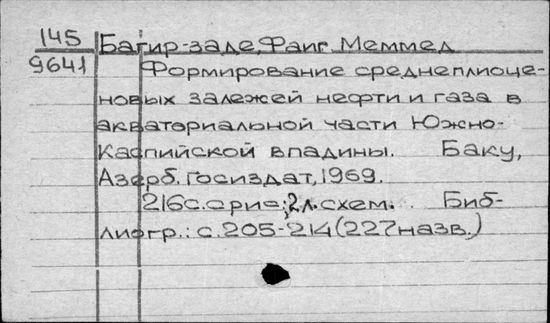 145 Багир-заде, Фаиг Меммед
9641 Формирование среднеплиоце-
новых залежей нефти и газа в
акваториальной части Южно-
Каспийской впадины. Баку,
Азерб. Госиздат, 1969.
216с. с рис.; 2 л. схем. Биб-
лиогр.: с. 205-214 (227 назв.)